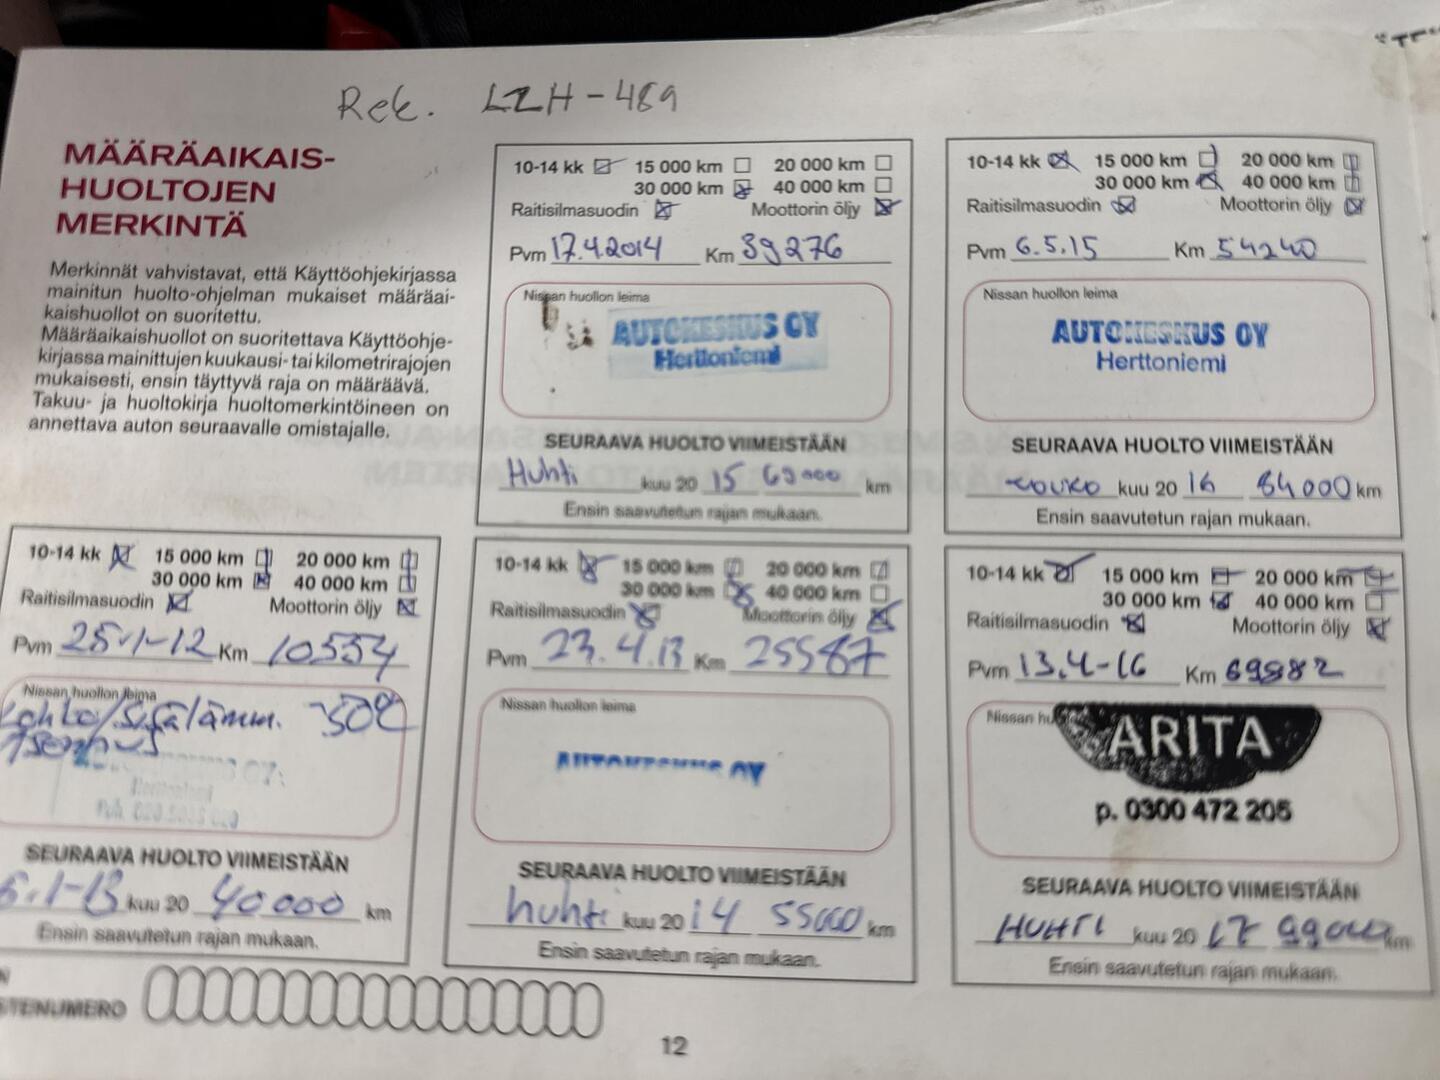 Rek. LZH-489
MÄÄRÄAIKAIS-
HUOLTOJEN
MERKINTÄ
Merkinnät vahvistavat, että Käyttöohjekirjassa
mainitun huolto-ohjelman mukaiset määräai-
kaishuollot on suoritettu.
Määräaikaishuollot on suoritettava Käyttöohje-
kirjassa mainittujen kuukausi- tai kilometrirajojen
mukaisesti, ensin täyttyvä raja on määräävä.
Takuu- ja huoltokirja huoltomerkintöineen on
annettava auton seuraavalle omistajalle.
10-14 kk 15 000 km 20 000 km
30 000 km 40 000 km
Raitisilmasuodin Moottorin öljy
Pvm 17.4.2014 Km 39276
Nissan huollon leima
AUTOKESKUS OY
Herttoniemi
SEURAAVA HUOLTO VIIMEISTÄÄN
Huhti kuu 20 15 69000 km
Ensin saavutetun rajan mukaan.
10-14 kk 15 000 km 20 000 km
30 000 km 40 000 km
Raitisilmasuodin Moottorin öljy
Pvm 6.5.15 Km 54240
Nissan huollon leima
AUTOKESKUS OY
Herttoniemi
SEURAAVA HUOLTO VIIMEISTÄÄN
kuu 20 16 84000 km
Ensin saavutetun rajan mukaan.
10-14 kk 15 000 km 20 000 km
30 000 km 40 000 km
Raitisilmasuodin Moottorin öljy
Pvm 25-1-12 Km 10554
Nissan huollon leima
Lohko/Sisälämm.
Herttoniemi
SEURAAVA HUOLTO VIIMEISTÄÄN
1-13 kuu 20 40000 km
Ensin saavutetun rajan mukaan.
10-14 kk 15 000 km 20 000 km
30 000 km 40 000 km
Raitisilmasuodin Moottorin öljy
Pvm 23.4.13 Km 25587
Nissan huollon leima
AUTOKESKUS OY
SEURAAVA HUOLTO VIIMEISTÄÄN
huhti kuu 20 14 55000 km
Ensin saavutetun rajan mukaan.
10-14 kk 15 000 km 20 000 km
30 000 km 40 000 km
Raitisilmasuodin Moottorin öljy
Pvm 13.4-16 Km 69882
Nissan
ARITA
p. 0300 472 205
SEURAAVA HUOLTO VIIMEISTÄÄN
HUHTI kuu 20 17 99000 km
Ensin saavutetun rajan mukaan.
12